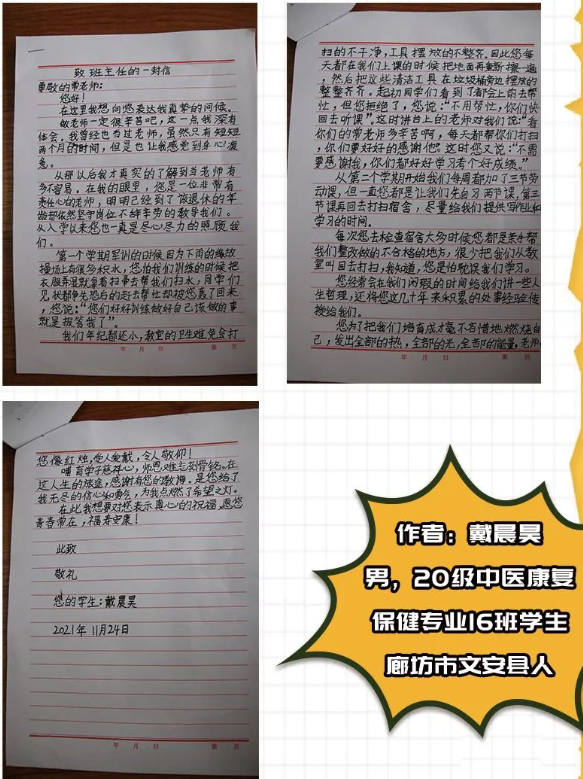 致班主任的一封信
尊敬的常老师:
您好!
在这里我想向您表达我真挚的问候。
做老师一定很辛苦吧,这一点我深有
体会。我曾经也当过老师,虽然只有短短
两个月的时间,但是也让我感觉到身心疲
惫。
从那以后我才真实的了解到当老师有
多不容易。在我的眼里,您是一位非常有
责任心的老师,明明已经到了该退休的年
龄却依然坚守岗位不辞辛劳的教导我们。
从入学以来您也一直是尽心尽力的照顾我
们。
第一个学期军训的时候因为下雨的缘故
操场上有很多积水,您怕我们训练的时候把
衣服弄湿就拿着扫帚去帮我们扫水,同学们
见状都争先恐后的赶去帮忙却被您轰了回来
,您说:“你们好好训练做好自己该做的事
就是报答我了”。
我们年纪都还小,教室的卫生难免会打
年 月 日 第 页
扫的不干净,工具摆放的不整齐。因此您每
天都在我们上课的时候把地面再重新擦一遍
,然后把这些清洁工具在垃圾桶旁边摆放的
整整齐齐。起初同学们看到了都会上前去帮
忙,但您拒绝了,您说:“不用帮忙,你们快
回去听课”。这时讲台上的老师对我们说:“看
你们的常老师多辛苦啊,每天都帮你们打扫
,你们要好好的感谢他”这时您又说:“不需
要感谢我,你们都好好学习考个好成绩。”
从第二个学期开始我们每周都加了三节劳
动课,但一直您都是让我们先自习两节课,第三
节课再回去打扫宿舍,尽量给我们提供写作业和
学习的时间。
每次您去检查宿舍大多时候您都是亲手帮
我们整改做的不合格的地方,很少把我们从教
室叫回去打扫,我知道,您是怕耽误我们学习。
您经常会在我们闲暇的时间给我们讲一些人
生哲理,还将您这几十年来积累的处事经验传
授给我们。
您为了把我们培育成才毫不吝惜地燃烧自
己,发出全部的热,全部的光,全部的能量。老师
年 月 日 第 页
您像红烛,受人爱戴,令人敬仰!
哺育学子慈祥心,师恩难忘刻骨铭。在
这人生的旅途,感谢有您的教诲。是您给了
我无尽的信心和勇气,为我点燃了希望之灯。
在此我想要对您表示真心的祝福,愿您
青春常在,福寿安康!
此致
敬礼
您的学生:戴晨昊
2021年11月24日
年 月 日 第 页
作者:戴晨昊
男,20级中医康复
保健专业16班学生
廊坊市文安县人